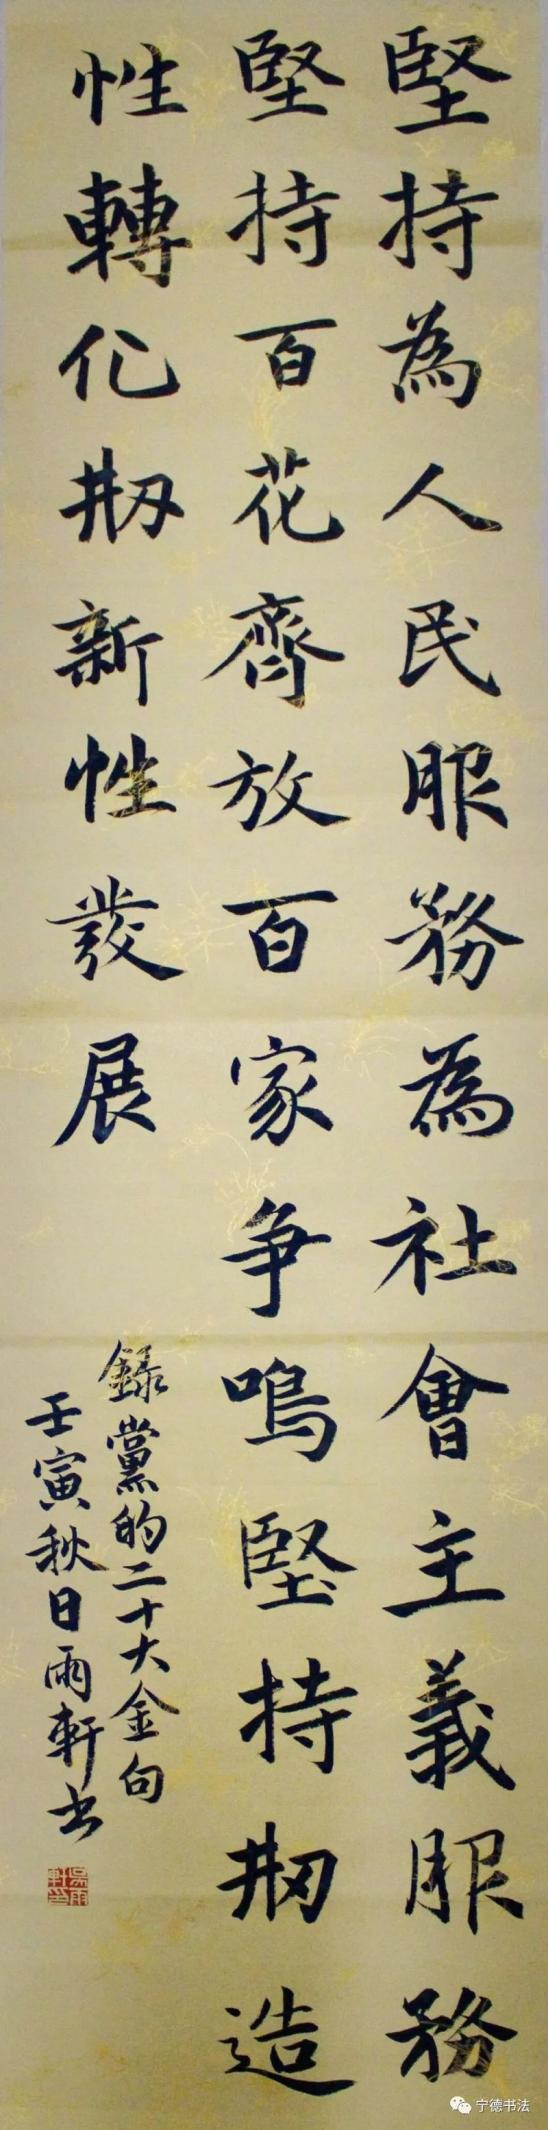 堅持為人民服務為社會主義服務
堅持百花齊放百家爭鳴堅持刱造
性轉化刱新性發展
錄黨的二十大金句
壬寅秋日雨軒书
吳雨軒印
宁德书法